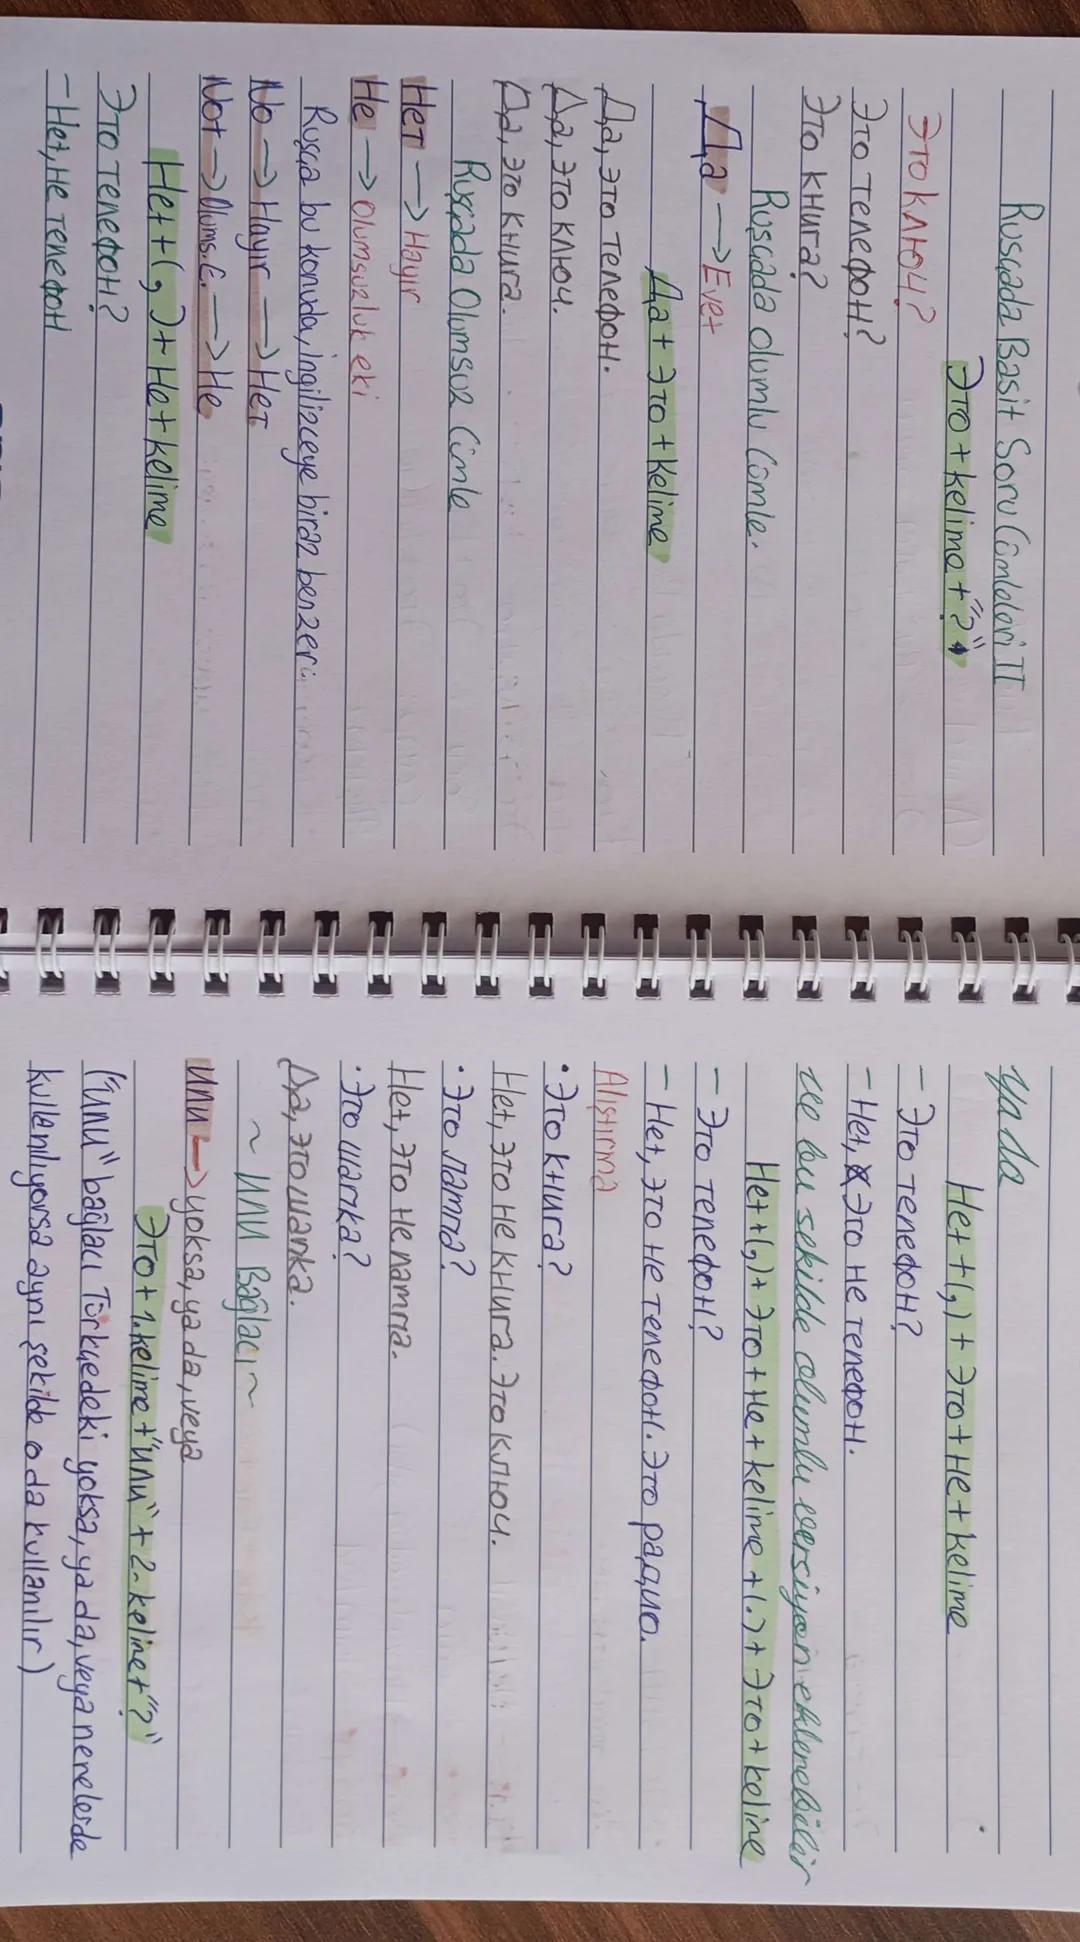 Rusçada Basit Soru Cümleleri II
Это + kelime + "?"
Это ключ?
Это телефон?
Это книга?
Rusçada olumlu Cümle.
Да → Evet
Да + Это + kelime
Да, это телефон.
Да, это ключ.
Да, это книга.
Rusçada Olumsuz Cümle
Нет → Hayır
Не → Olumsuzluk eki
Rusça bu konuda, ingilizceye biraz benzer.
No → Hayır → Нет
Not → Olums. E. → Не
Нет + (,) + Не + kelime
Это телефон?
- Нет, не телефон
ya da
Нет + (,) + Это + не + kelime
- Это телефон?
- Нет, это не телефон.
ve bu şekilde olumlu versiyon eklenebilir
Нет + (,) + Это + Не + kelime + (.) + Это + kelime
- Это телефон?
- Нет, это не телефон. Это радио.
Alıştırma
• Это книга?
Нет, это не книга. Это ключ.
• Это лампа?
Нет, это не лампа.
• Это шапка?
Да, это шапка.
~ или Bağlacı ~
или → yoksa, ya da, veya
Это + 1. kelime + "или" + 2. kelime + "?"
("или" bağlacı Türkçedeki yoksa, ya da, veya nerelerde
kullanılıyorsa aynı şekilde o da kullanılır)